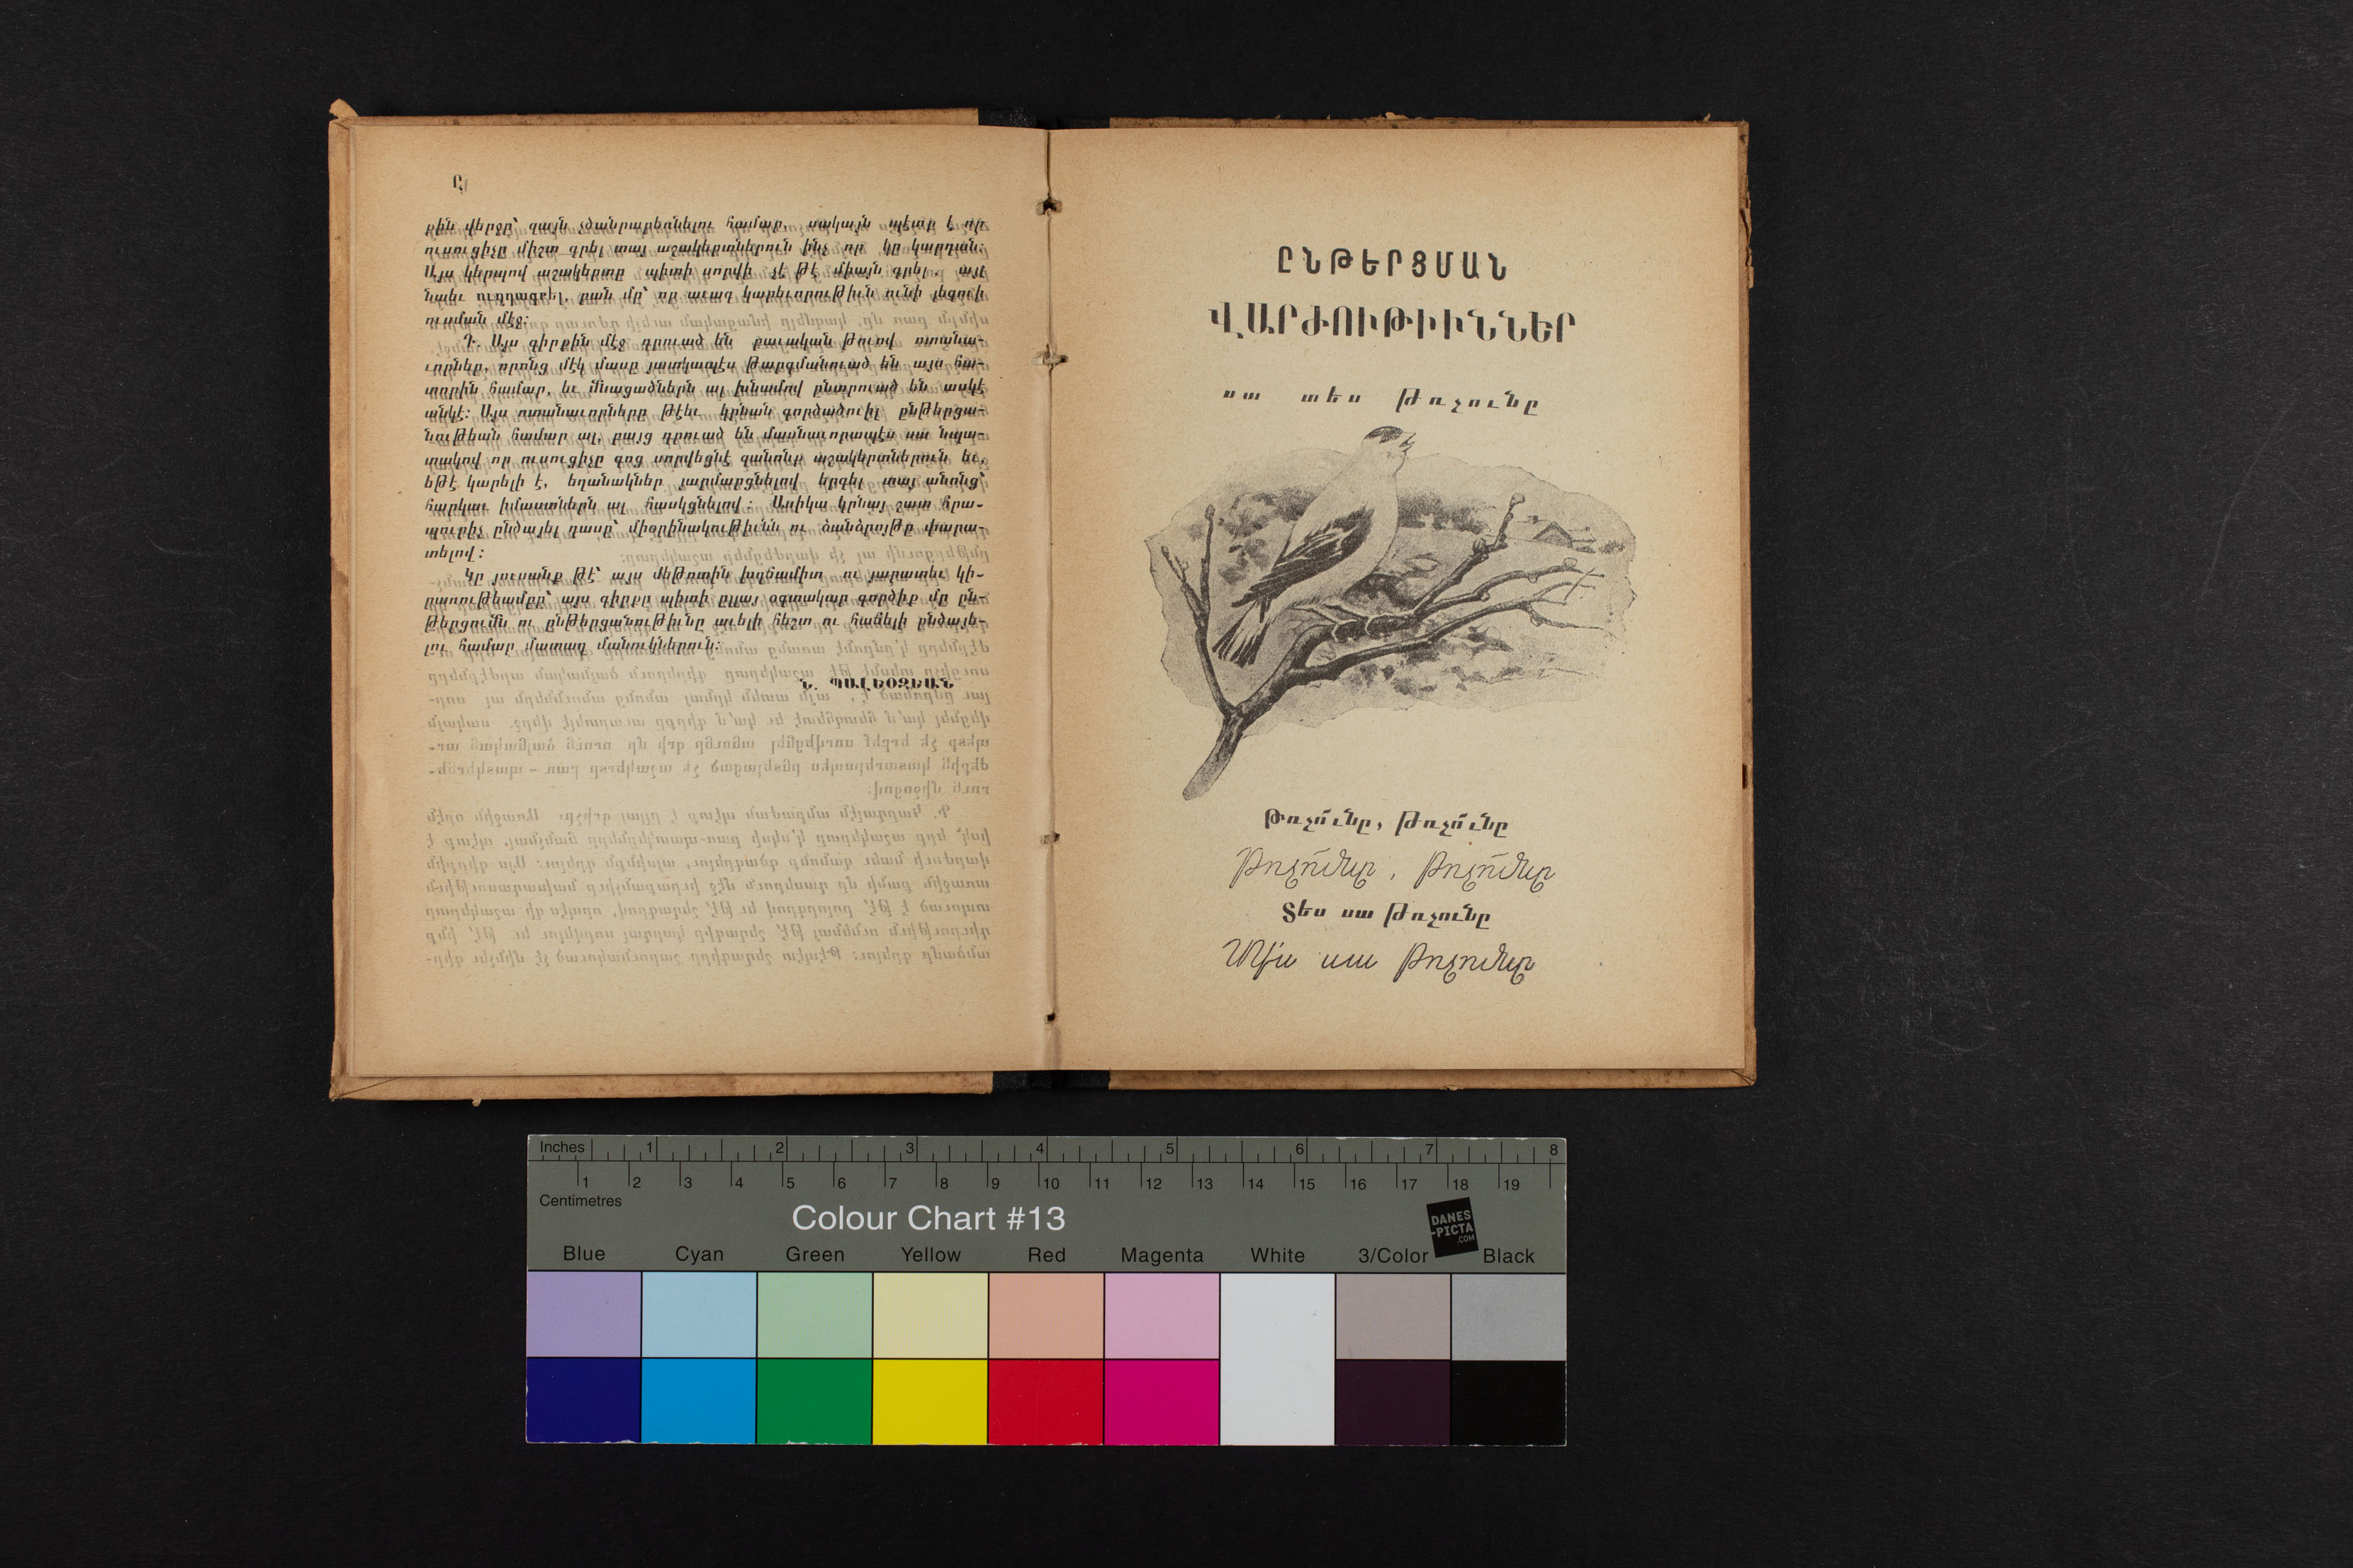 Ը
քին վերջը՝ զայն չծանրաբեռնելու համար, սակայն պէտք է որ
ուսուցիչը միշտ գրել տայ աշակերտներուն ինչ որ կը կարդան։
Այս կերպով աշակերտը պիտի սորվի չէ թէ միայն գրել, այլ
նաեւ ուղղագրել, բան մը՝ որ աւագ կարեւորութիւն ունի լեզուի
ուսման մէջ։
Դ. Այս գիրքին մէջ դրուած են բաւական թուով ոտանա-
ւորներ, որոնց մէկ մասը յատկապէս թարգմանուած են այս հա-
տորին համար, եւ մնացածներն ալ խնամով ընտրուած են ասկէ
անկէ։ Այս ոտանաւորները թէեւ կրնան գործածուիլ ընթերցա-
նութեան համար ալ, բայց դրուած են մասնաւորապէս սա նպա-
տակով որ ուսուցիչը գոց սորվեցնէ զանոնք աշակերտներուն եւ,
եթէ կարելի է, եղանակներ յարմարցնելով երգել տայ անոնց՝
հարկաւ իմաստներն ալ հասկցնելով։ Ասիկա կրնայ շատ հրա-
պուրիչ ընծայել դասը՝ միօրինակութիւնն ու ձանձրոյթը փարա-
տելով։
Կը յուսանք թէ՝ այս մեթոտին խղճամիտ ու յարատեւ կի-
րառութեամբը՝ այս գիրքը պիտի ըլլայ օգտակար գործիք մը ըն-
թերցումն ու ընթերցանութիւնը աւելի հեշտ ու հաճելի ընծայե-
լու համար մատաղ մանուկներուն։
Ն. ՊԱԼԵՕԶԵԱՆ
ԸՆԹԵՐՑՄԱՆ
ՎԱՐԺՈՒԹԻՒՆՆԵՐ
սա տես թռչունը
Թռչո՜ւնը, թռչո՜ւնը
Թռչո՜ւնը, թռչո՜ւնը
Տես սա թռչունը
Տես սա թռչունը
Inches 1 2 3 4 5 6 7 8
1 2 3 4 5 6 7 8 9 10 11 12 13 14 15 16 17 18 19
Centimetres
Colour Chart #13
DANES
-PICTA
.COM
Blue Cyan Green Yellow Red Magenta White 3/Color Black